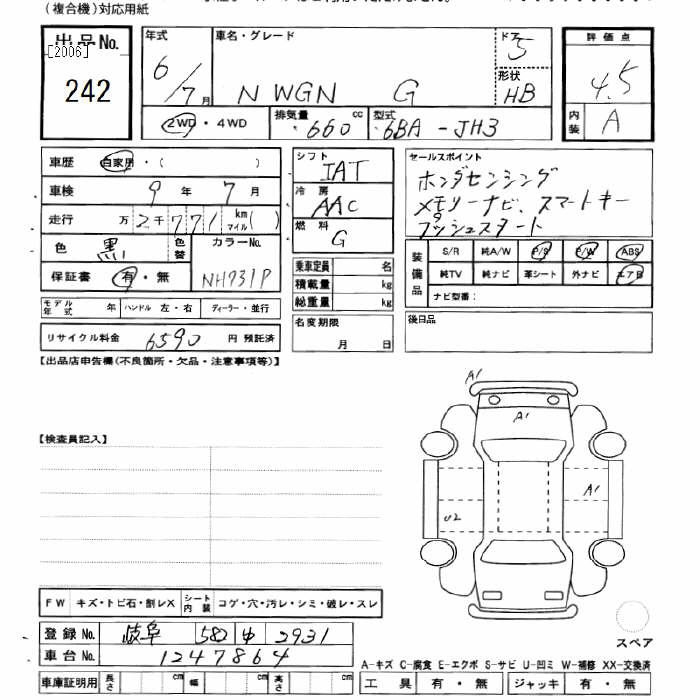 (複合機)対応用紙
出品No.
[2006]
242
年式
6/7月
車名・グレード
N WGN G
ドア
5
形状
HB
評価点
4.5
内装
A
2WD・4WD
排気量
660 cc
型式
6BA-JH3
車歴 自家用・( )
車検 9 年 7 月
走行 万 2千771 km マイル ( )
色 黒 色替 カラーNo.
保証書 有・無 NH731P
モデル年式 年 ハンドル 左・右 ディーラー・並行
リサイクル料金 6590 円 預託済
シフト
IAT
冷房
AAC
燃料
G
乗車定員 名
積載量 kg
総重量 kg
名変期限
月 日
セールスポイント
ホンダセンシング
メモリーナビ、スマートキー
プッシュスタート
装備品
S/R 純A/W P/S P/W ABS
純TV 純ナビ 革シート 外ナビ エアB
ナビ型番:
後日品
【出品店申告欄(不良箇所・欠品・注意事項等)】
【検査員記入】
A1
A1
A1
U2
スペア
FW キズ・トビ石・割レX シート内装 コゲ・穴・汚レ・シミ・破レ・スレ
登録No. 岐阜 582 ゆ 2931
車台No. 1247864
車庫証明用 長さ cm 幅 cm 高さ cm
A-キズ C-腐食 E-エクボ S-サビ U-凹ミ W-補修 XX-交換済
工具 有・無 ジャッキ 有・無